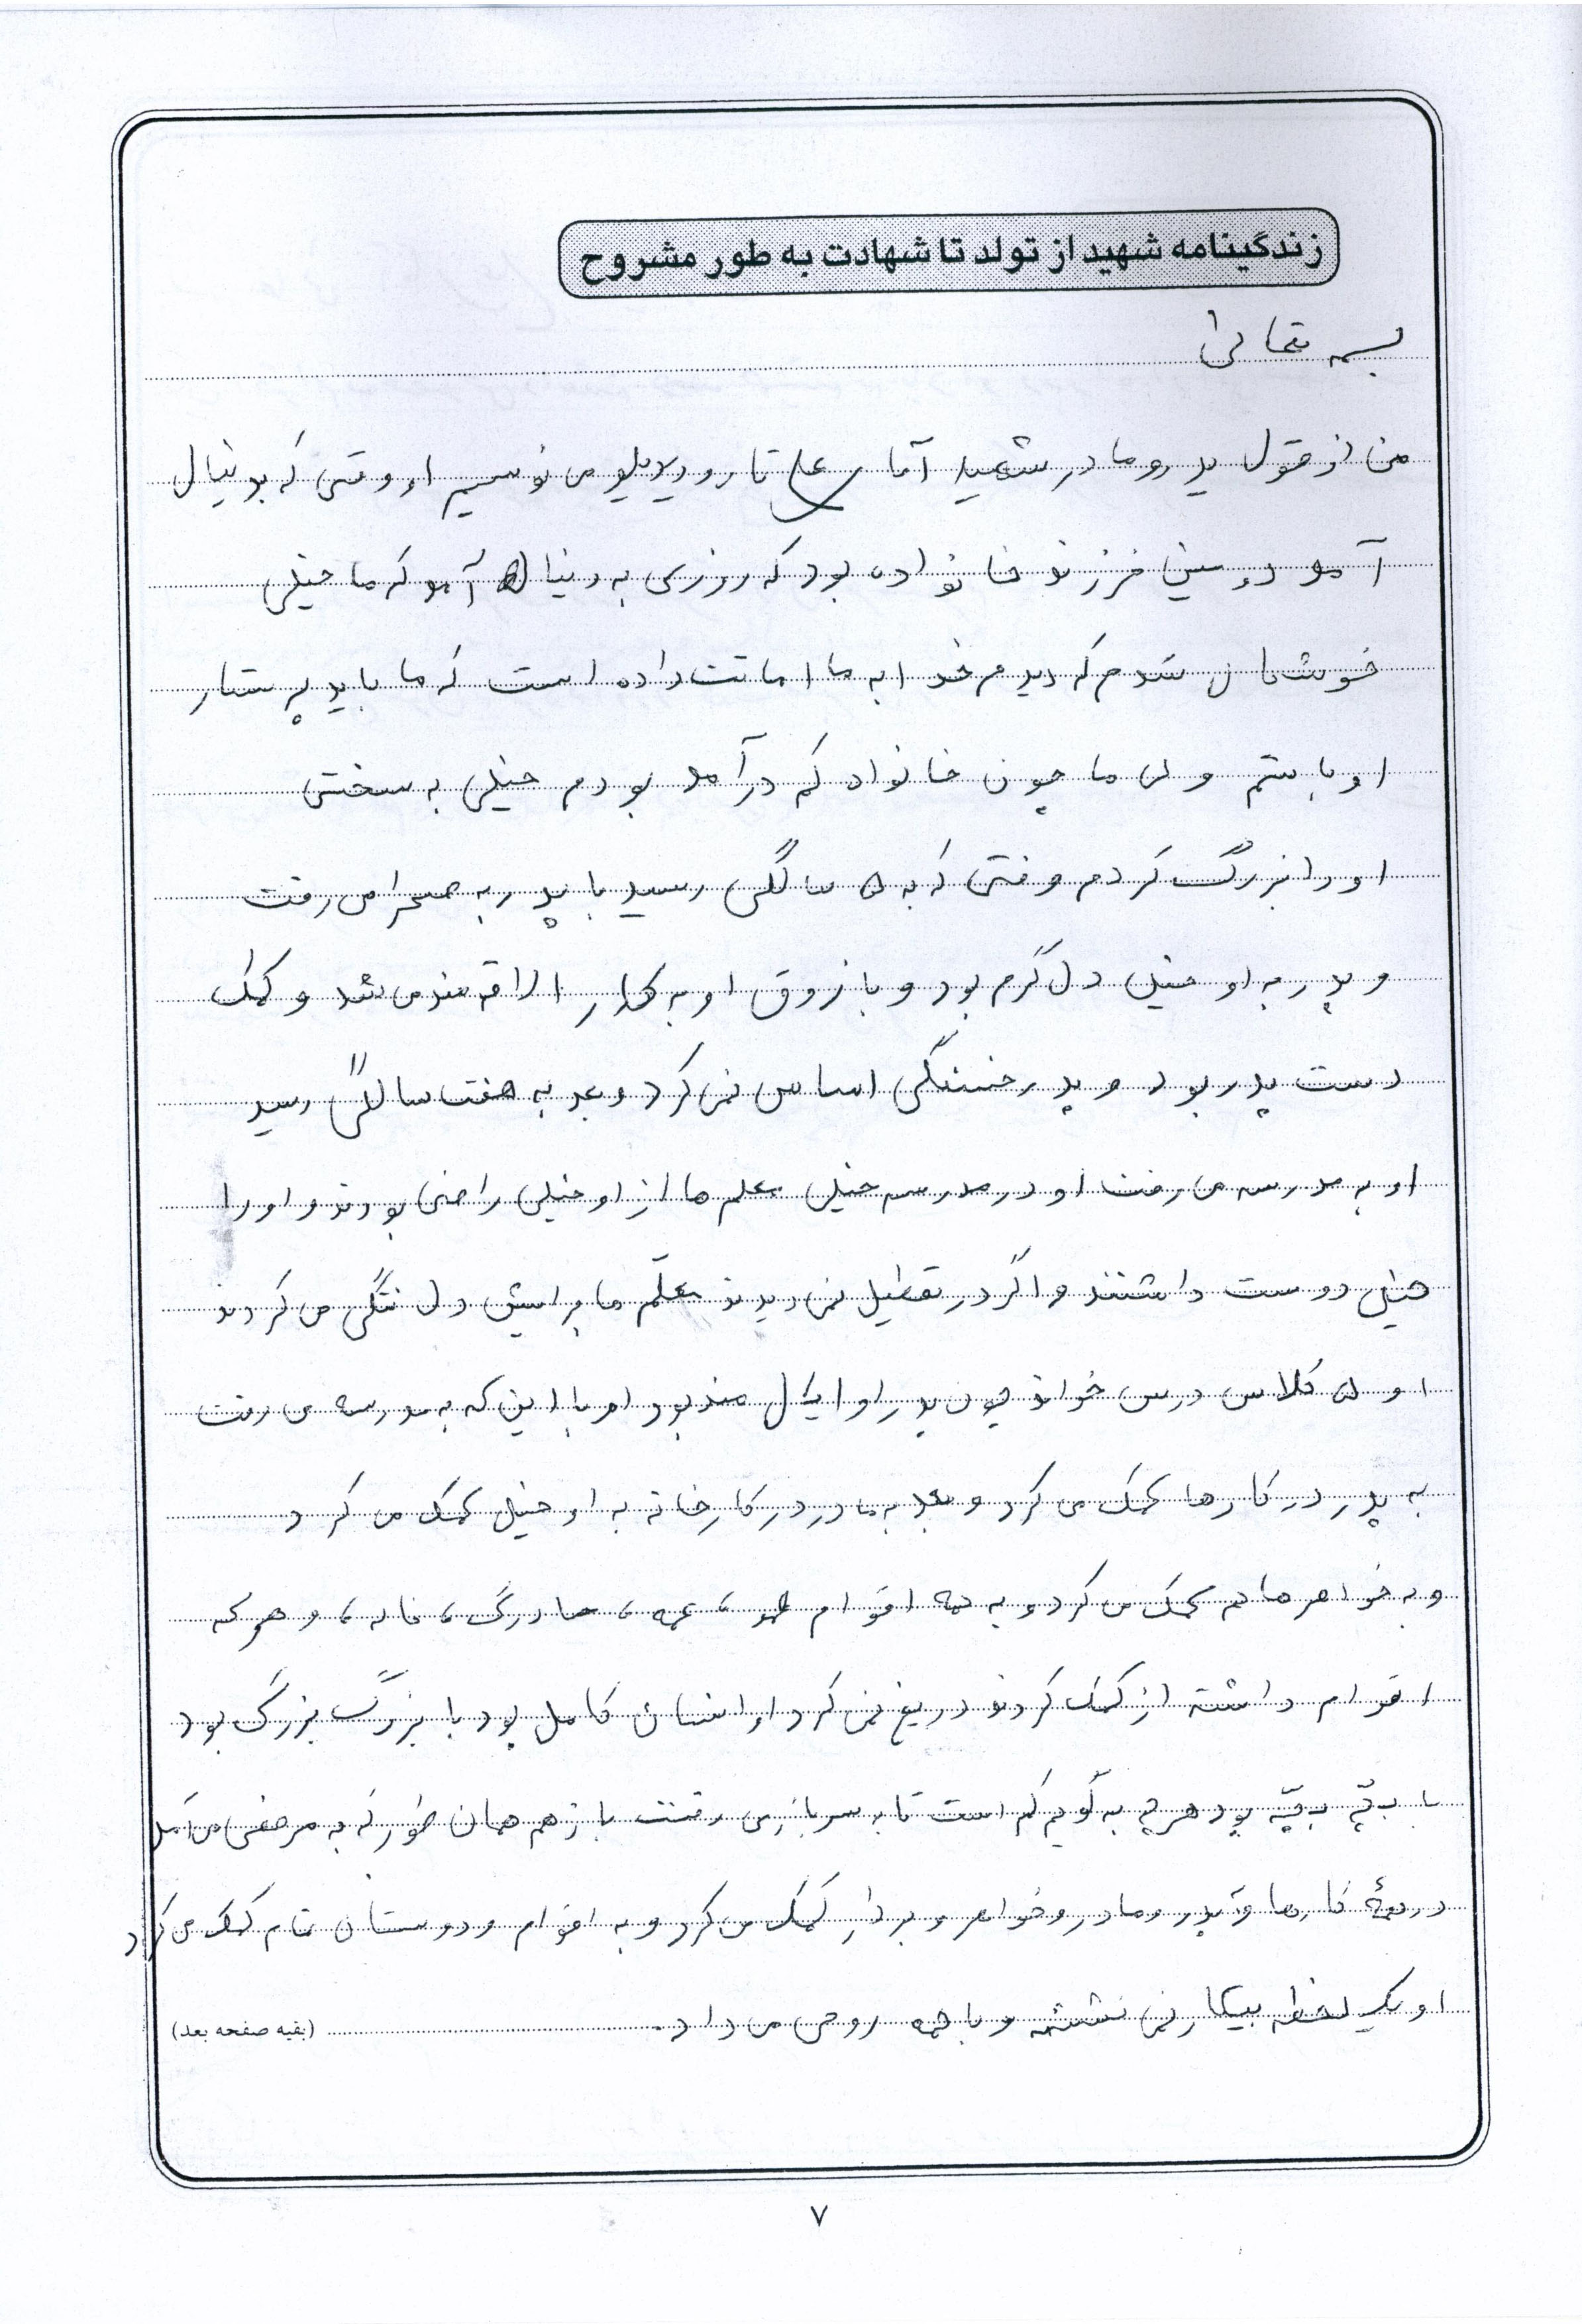 زندگینامه شهید از تولد تا شهادت به طور مشروح
بسمه تعالی
من از قول پدر و مادر شهید آقا علی تارویردیلو می نویسیم او وقتی که بدنیال
آمد دومین فرزند خانواده بود که روزی به دنیا آمد که ما خیلی
خوشحال شدم که دیدم خدا به ما امانت داده است که ما باید پرستار
او باشم ولی ما چون خانواده کم درآمد بودم خیلی به سختی
او را بزرگ کردم وقتی که به ۵ سالگی رسید با پدر به صحرا می رفت
و پدر به او خیلی دل گرم بود و با زوق او به کار علاقه مند می شد و کمک
دست پدر بود و پدر خستگی احساس نمی کرد و بعد به هفت سالگی رسید
او به مدرسه می رفت او در مدرسه خیلی معلم ها از او خیلی راضی بودند و او را
خیلی دوست داشتند و اگر در تعطیل نمی دیدند معلّم ها برایش دل تنگی می کردند
او ۵ کلاس درس خواند چون پدر او مند بود او با این که به مدرسه می رفت
به پدر در کارها کمک می کرد و بعد به مادر در کار خانه به او خیلی کمک می کرد
و به خواهر ها هم کمک می کرد و به همه اقوام عمو ، عمه ، مادرگ ، خاله ، و هر که
اقوام داشته از کمک کردند دریغ نمی کرد او انسان کامل بود با بزرگ بزرگ بود
با بچّه بچّه بود هر چه به گویم کم است تا به سربازی رفت باز هم همان طور که به مرخصی می آمد
در همهٔ کارها پدر و مادر و خواهر و برادر کمک می کرد و به اقوام و دوستان تمام کمک می کرد
او یک لحظه بیکار نمی نشست و با همه روحی می داد.
(بقیه صفحه بعد)
۷